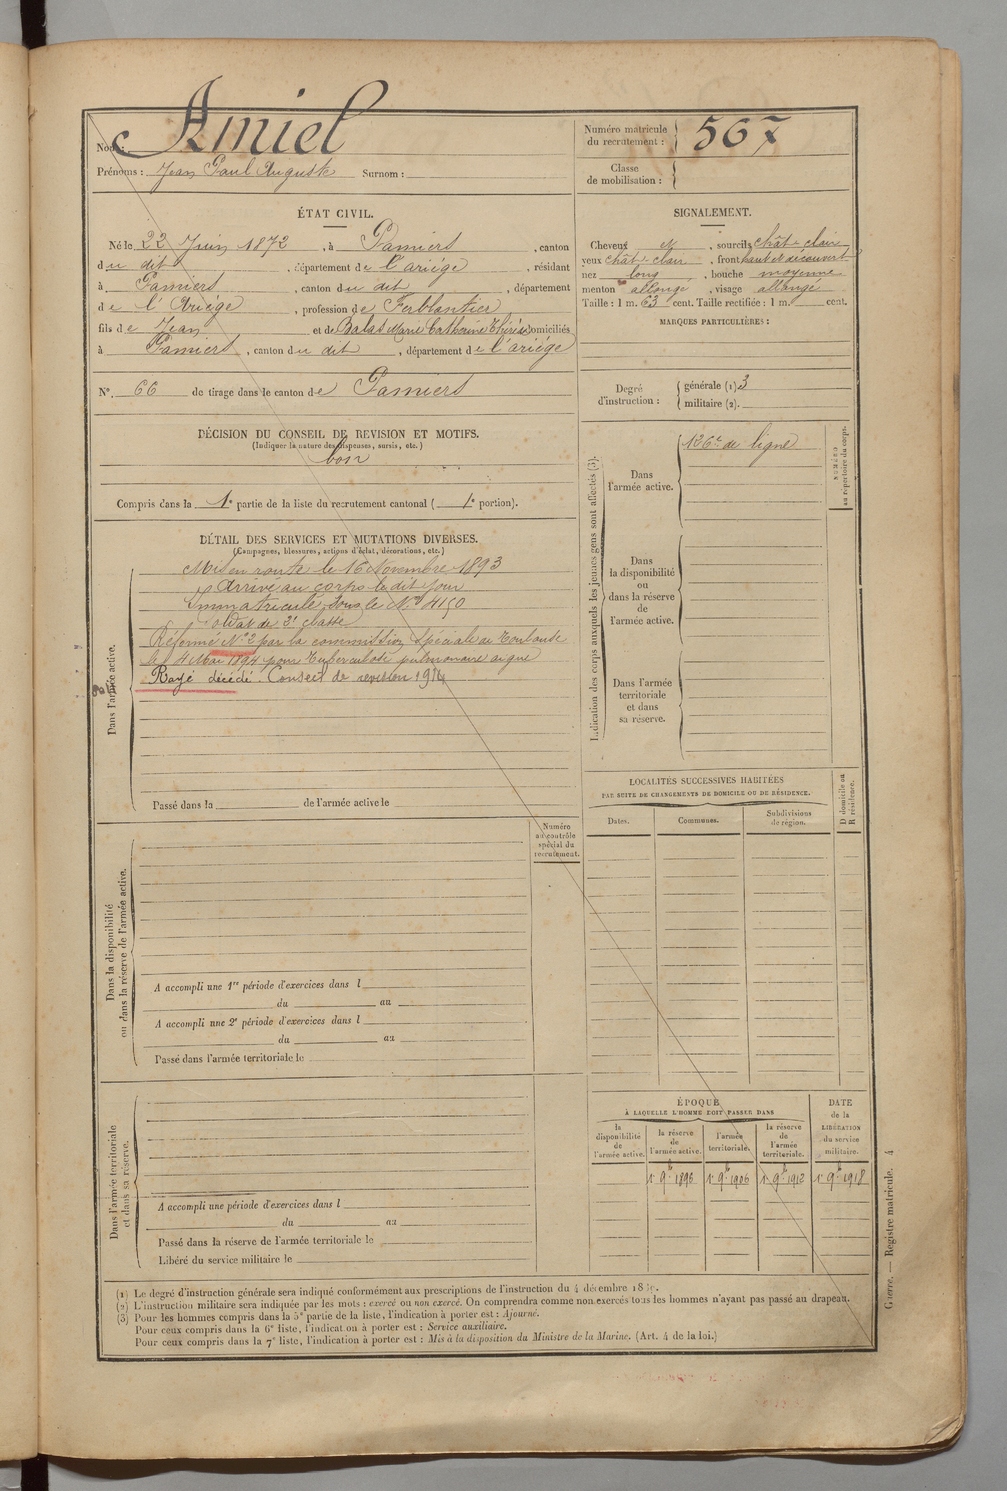 Nom : Amiel
Prénoms : Jean Paul Auguste Surnom :
Numéro matricule du recrutement : 567
Classe de mobilisation :
ÉTAT CIVIL.
Né le 22 Juin 1872, à Pamiers, canton
du dit, département de l'ariége, résidant
à Pamiers, canton du dit, département
de l'Ariége, profession de Ferblantier
fils de Jean et de Balas Marie Catherine Thérèse domiciliés
à Pamiers, canton du dit, département de l'ariége
N°. 66 de tirage dans le canton de Pamiers
DÉCISION DU CONSEIL DE REVISION ET MOTIFS.
(Indiquer la nature des dispenses, sursis, etc.)
bon
Compris dans la 1e partie de la liste du recrutement cantonal (1e portion).
DÉTAIL DES SERVICES ET MUTATIONS DIVERSES.
(Campagnes, blessures, actions d'éclat, décorations, etc.)
Dans l'armée active.
Mis en route le 16 Novembre 1893
Arrivé au corps le dit jour
Immatriculé sous le N° 4150
Soldat de 2e classe
Réformé N° 2 par la commission spéciale de Toulouse
le 4 Mai 1894 pour Tuberculose pulmonaire aigue
Rayé décédé. Conseil de revision 1914
Passé dans la de l'armée active le
Numéro au contrôle spécial du recrutement.
Dans la disponibilité ou dans la réserve de l'armée active.
A accompli une 1re période d'exercices dans l
du au
A accompli une 2e période d'exercices dans l
du au
Passé dans l'armée territoriale le
Dans l'armée territoriale et dans sa réserve.
A accompli une période d'exercices dans l
du au
Passé dans la réserve de l'armée territoriale le
Libéré du service militaire le
SIGNALEMENT.
Cheveux M, sourcils chât-clair
yeux chât-clair, front haut et découvert
nez long, bouche moyenne
menton allongé, visage allongé
Taille : 1 m. 63 cent. Taille rectifiée : 1 m. cent.
MARQUES PARTICULIÈRES :
Degré d'instruction : générale (1) 3
militaire (2).
Indication des corps auxquels les jeunes gens sont affectés (3).
NUMÉRO au répertoire du corps.
Dans l'armée active.
126e de ligne
Dans la disponibilité ou dans la réserve de l'armée active.
Dans l'armée territoriale et dans sa réserve.
LOCALITÉS SUCCESSIVES HABITÉES
PAR SUITE DE CHANGEMENTS DE DOMICILE OU DE RÉSIDENCE.
D domicile ou R résidence.
Dates. Communes. Subdivisions de région.
ÉPOQUE
À LAQUELLE L'HOMME DOIT PASSER DANS
DATE de la LIBÉRATION du service militaire.
la disponibilité de l'armée active.
la réserve de l'armée active.
l'armée territoriale.
la réserve de l'armée territoriale.
1r 9b 1896 1r 9b 1906 1r 9b 1912 1r 9b 1918
(1) Le degré d'instruction générale sera indiqué conformément aux prescriptions de l'instruction du 4 décembre
(2) L'instruction militaire sera indiquée par les mots : exercé ou non exercé. On comprendra comme non exercés tous les hommes n'ayant pas passé au drapeau.
(3) Pour les hommes compris dans la 5e partie de la liste, l'indication à porter est : Ajourné.
Pour ceux compris dans la 6e liste, l'indication à porter est : Service auxiliaire.
Pour ceux compris dans la 7e liste, l'indication à porter est : Mis à la disposition du Ministre de la Marine. (Art. 4 de la loi.)
Guerre. — Registre matricule. 4